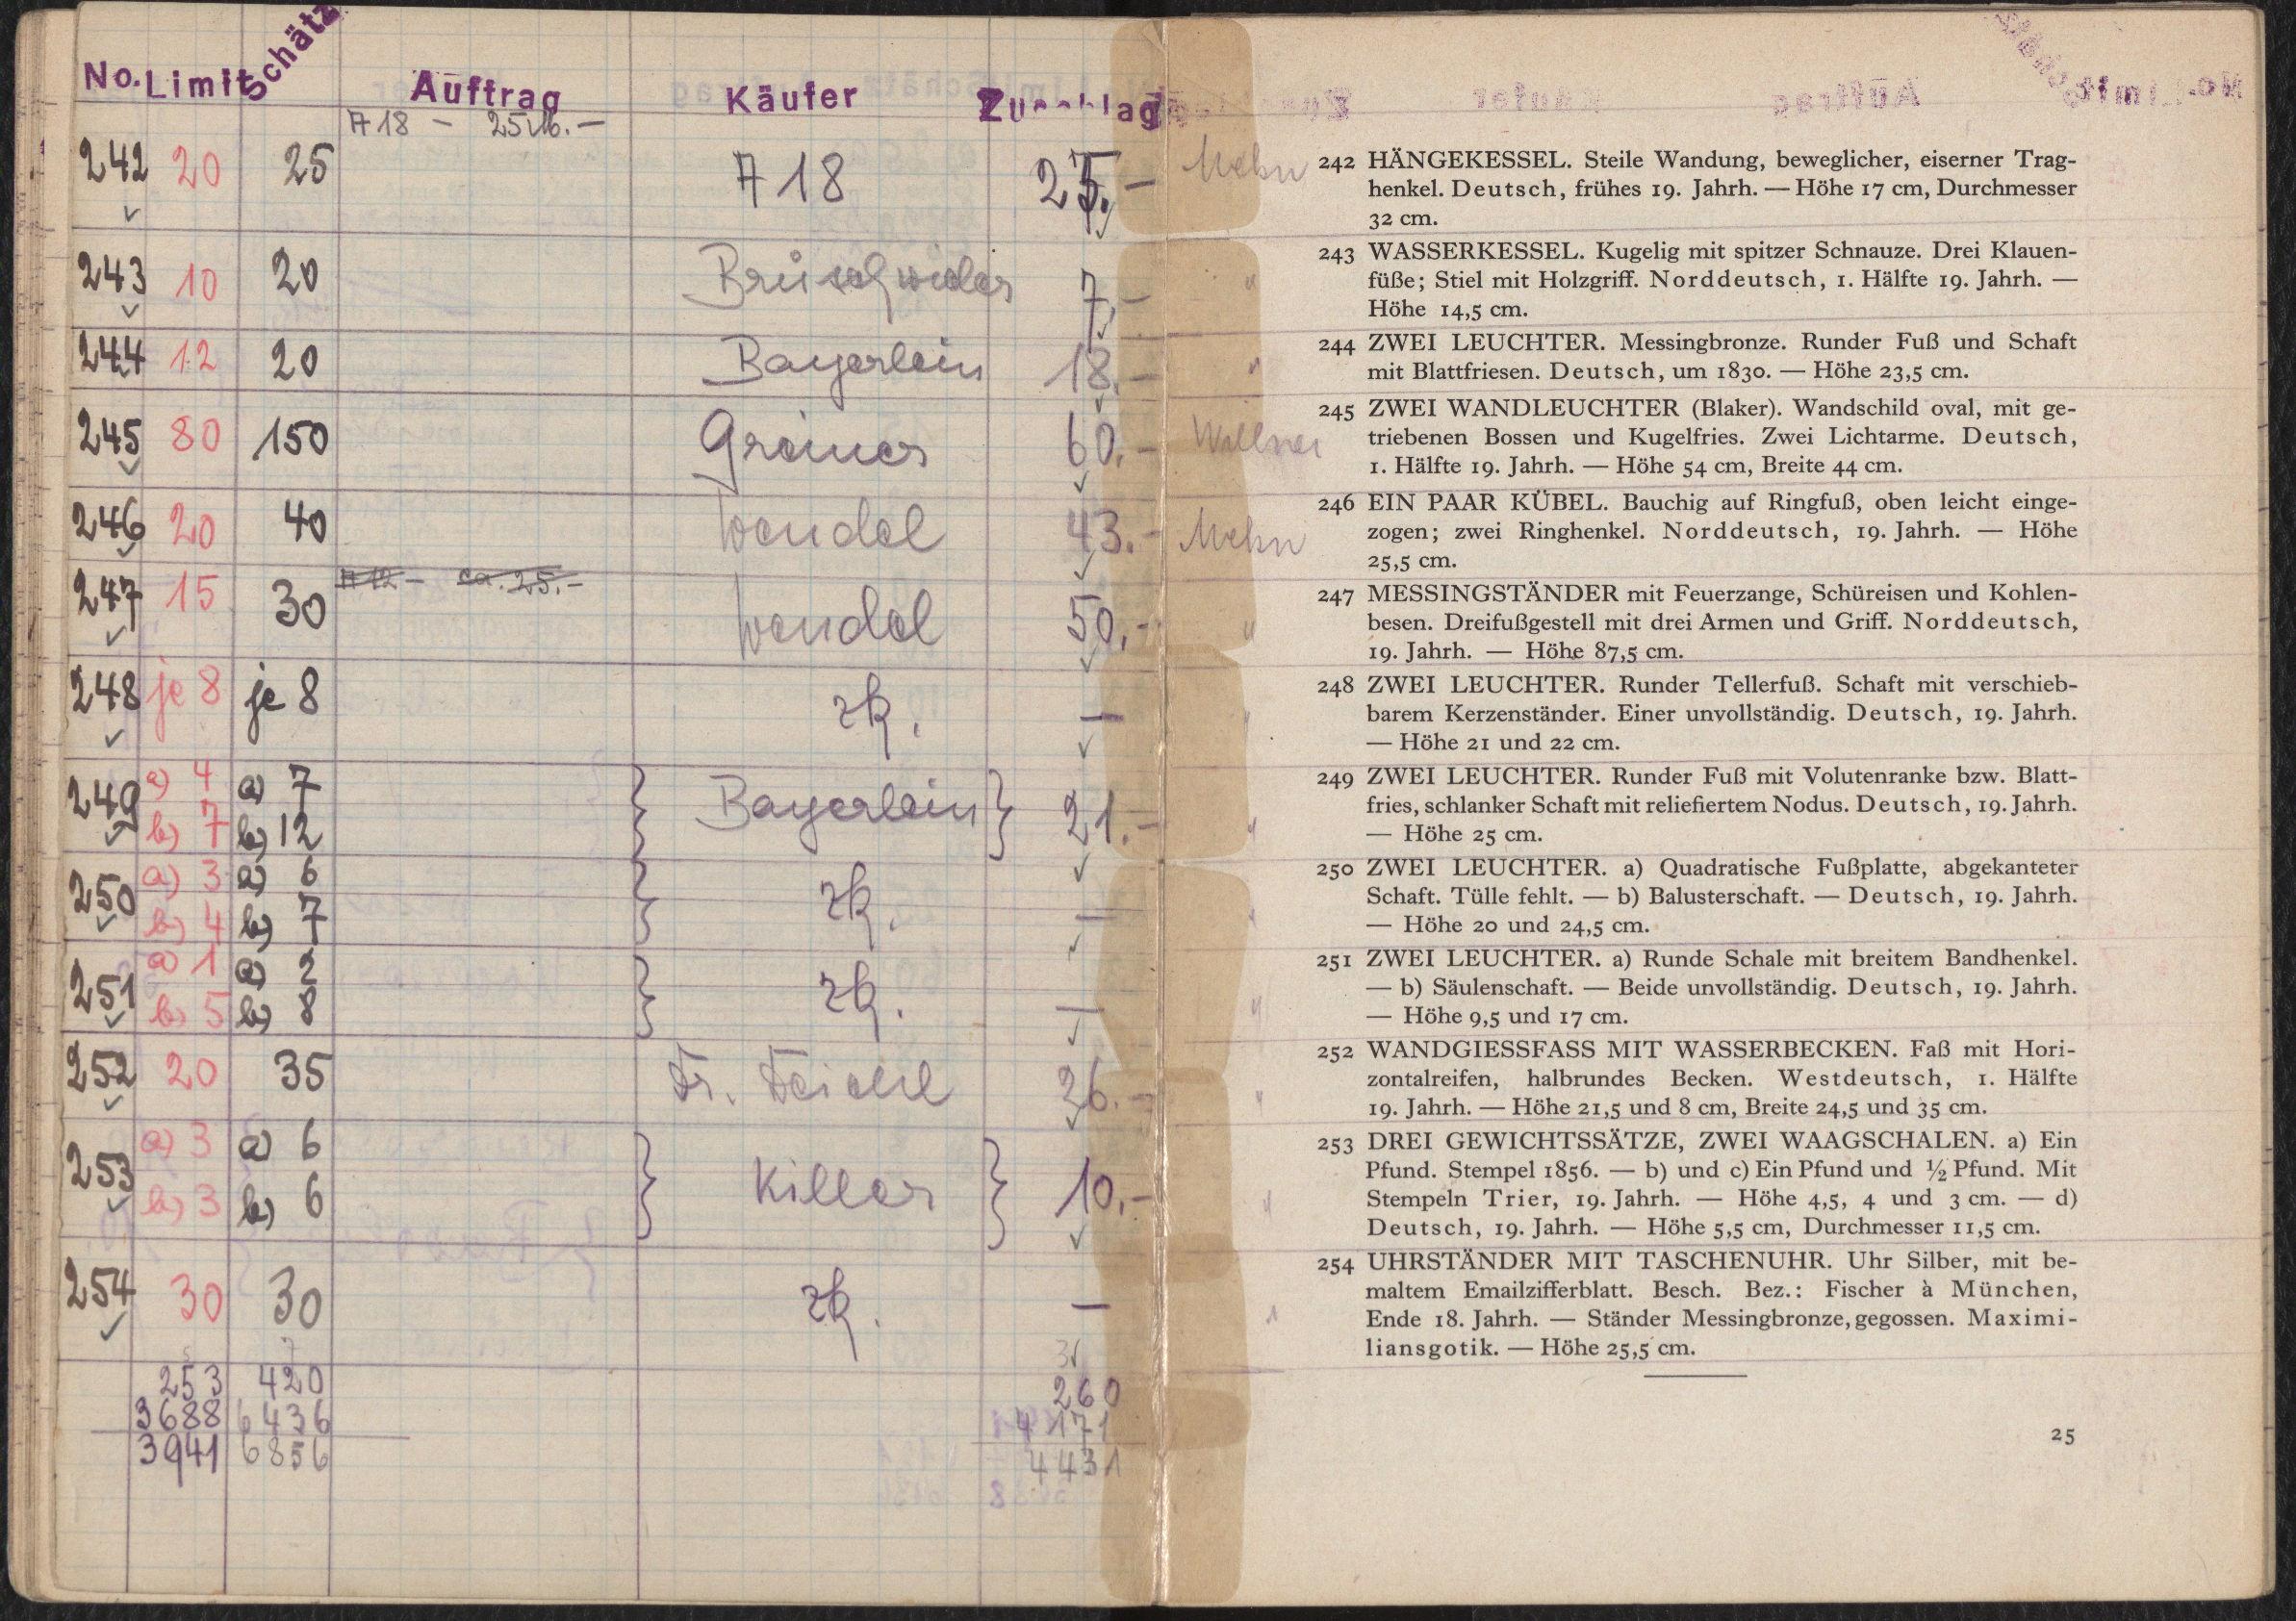 No. Limit Schätz Auftrag Käufer Zuschlag
A 18 - 25 M. -
242 20 25 A 18 25.-
243 10 20 Brüschwiler 7.-
244 12 20 Bayerlein 18.-
245 80 150 Greiner 60.-
246 20 40 Wendel 43.-
A 12 - ca. 25.-
247 15 30 Wendel 50.-
248 je 8 je 8 zk. —
249 a) 4 a) 7 Bayerlein 21.-
b) 7 b) 12
250 a) 3 a) 6 zk. —
b) 4 b) 7
251 a) 1 a) 2 zk. —
b) 5 b) 8
252 20 35 26.-
253 a) 3 a) 6 Killer 10.-
b) 3 b) 6
254 30 30 zk. —
253 420 260
3688 6436 4171
3941 6856 4431
242 HÄNGEKESSEL. Steile Wandung, beweglicher, eiserner Trag-
henkel. Deutsch, frühes 19. Jahrh. — Höhe 17 cm, Durchmesser
32 cm.
243 WASSERKESSEL. Kugelig mit spitzer Schnauze. Drei Klauen-
füße; Stiel mit Holzgriff. Norddeutsch, 1. Hälfte 19. Jahrh. —
Höhe 14,5 cm.
"
244 ZWEI LEUCHTER. Messingbronze. Runder Fuß und Schaft
mit Blattfriesen. Deutsch, um 1830. — Höhe 23,5 cm.
"
Wallner
245 ZWEI WANDLEUCHTER (Blaker). Wandschild oval, mit ge-
triebenen Bossen und Kugelfries. Zwei Lichtarme. Deutsch,
1. Hälfte 19. Jahrh. — Höhe 54 cm, Breite 44 cm.
246 EIN PAAR KÜBEL. Bauchig auf Ringfuß, oben leicht einge-
zogen; zwei Ringhenkel. Norddeutsch, 19. Jahrh. — Höhe
25,5 cm.
247 MESSINGSTÄNDER mit Feuerzange, Schüreisen und Kohlen-
besen. Dreifußgestell mit drei Armen und Griff. Norddeutsch,
19. Jahrh. — Höhe 87,5 cm.
"
248 ZWEI LEUCHTER. Runder Tellerfuß. Schaft mit verschieb-
barem Kerzenständer. Einer unvollständig. Deutsch, 19. Jahrh.
— Höhe 21 und 22 cm.
"
249 ZWEI LEUCHTER. Runder Fuß mit Volutenranke bzw. Blatt-
fries, schlanker Schaft mit reliefiertem Nodus. Deutsch, 19. Jahrh.
— Höhe 25 cm.
"
250 ZWEI LEUCHTER. a) Quadratische Fußplatte, abgekanteter
Schaft. Tülle fehlt. — b) Balusterschaft. — Deutsch, 19. Jahrh.
— Höhe 20 und 24,5 cm.
"
251 ZWEI LEUCHTER. a) Runde Schale mit breitem Bandhenkel.
— b) Säulenschaft. — Beide unvollständig. Deutsch, 19. Jahrh.
— Höhe 9,5 und 17 cm.
"
252 WANDGIESSFASS MIT WASSERBECKEN. Faß mit Hori-
zontalreifen, halbrundes Becken. Westdeutsch, 1. Hälfte
19. Jahrh. — Höhe 21,5 und 8 cm, Breite 24,5 und 35 cm.
"
253 DREI GEWICHTSSÄTZE, ZWEI WAAGSCHALEN. a) Ein
Pfund. Stempel 1856. — b) und c) Ein Pfund und ½ Pfund. Mit
Stempeln Trier, 19. Jahrh. — Höhe 4,5, 4 und 3 cm. — d)
Deutsch, 19. Jahrh. — Höhe 5,5 cm, Durchmesser 11,5 cm.
"
254 UHRSTÄNDER MIT TASCHENUHR. Uhr Silber, mit be-
maltem Emailzifferblatt. Besch. Bez.: Fischer à München,
Ende 18. Jahrh. — Ständer Messingbronze, gegossen. Maximi-
liansgotik. — Höhe 25,5 cm.
25